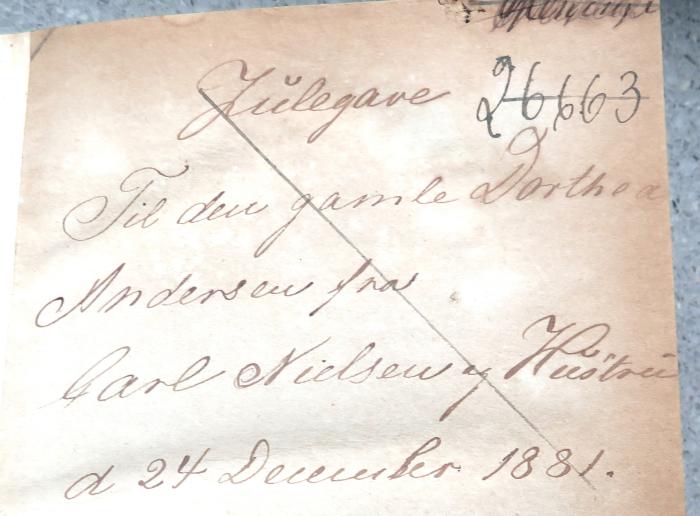 Julegave
26663
Til den gamle Dorthea
Andersen fra
Carl Nielsen og Hüstrü
d 24 December 1881.